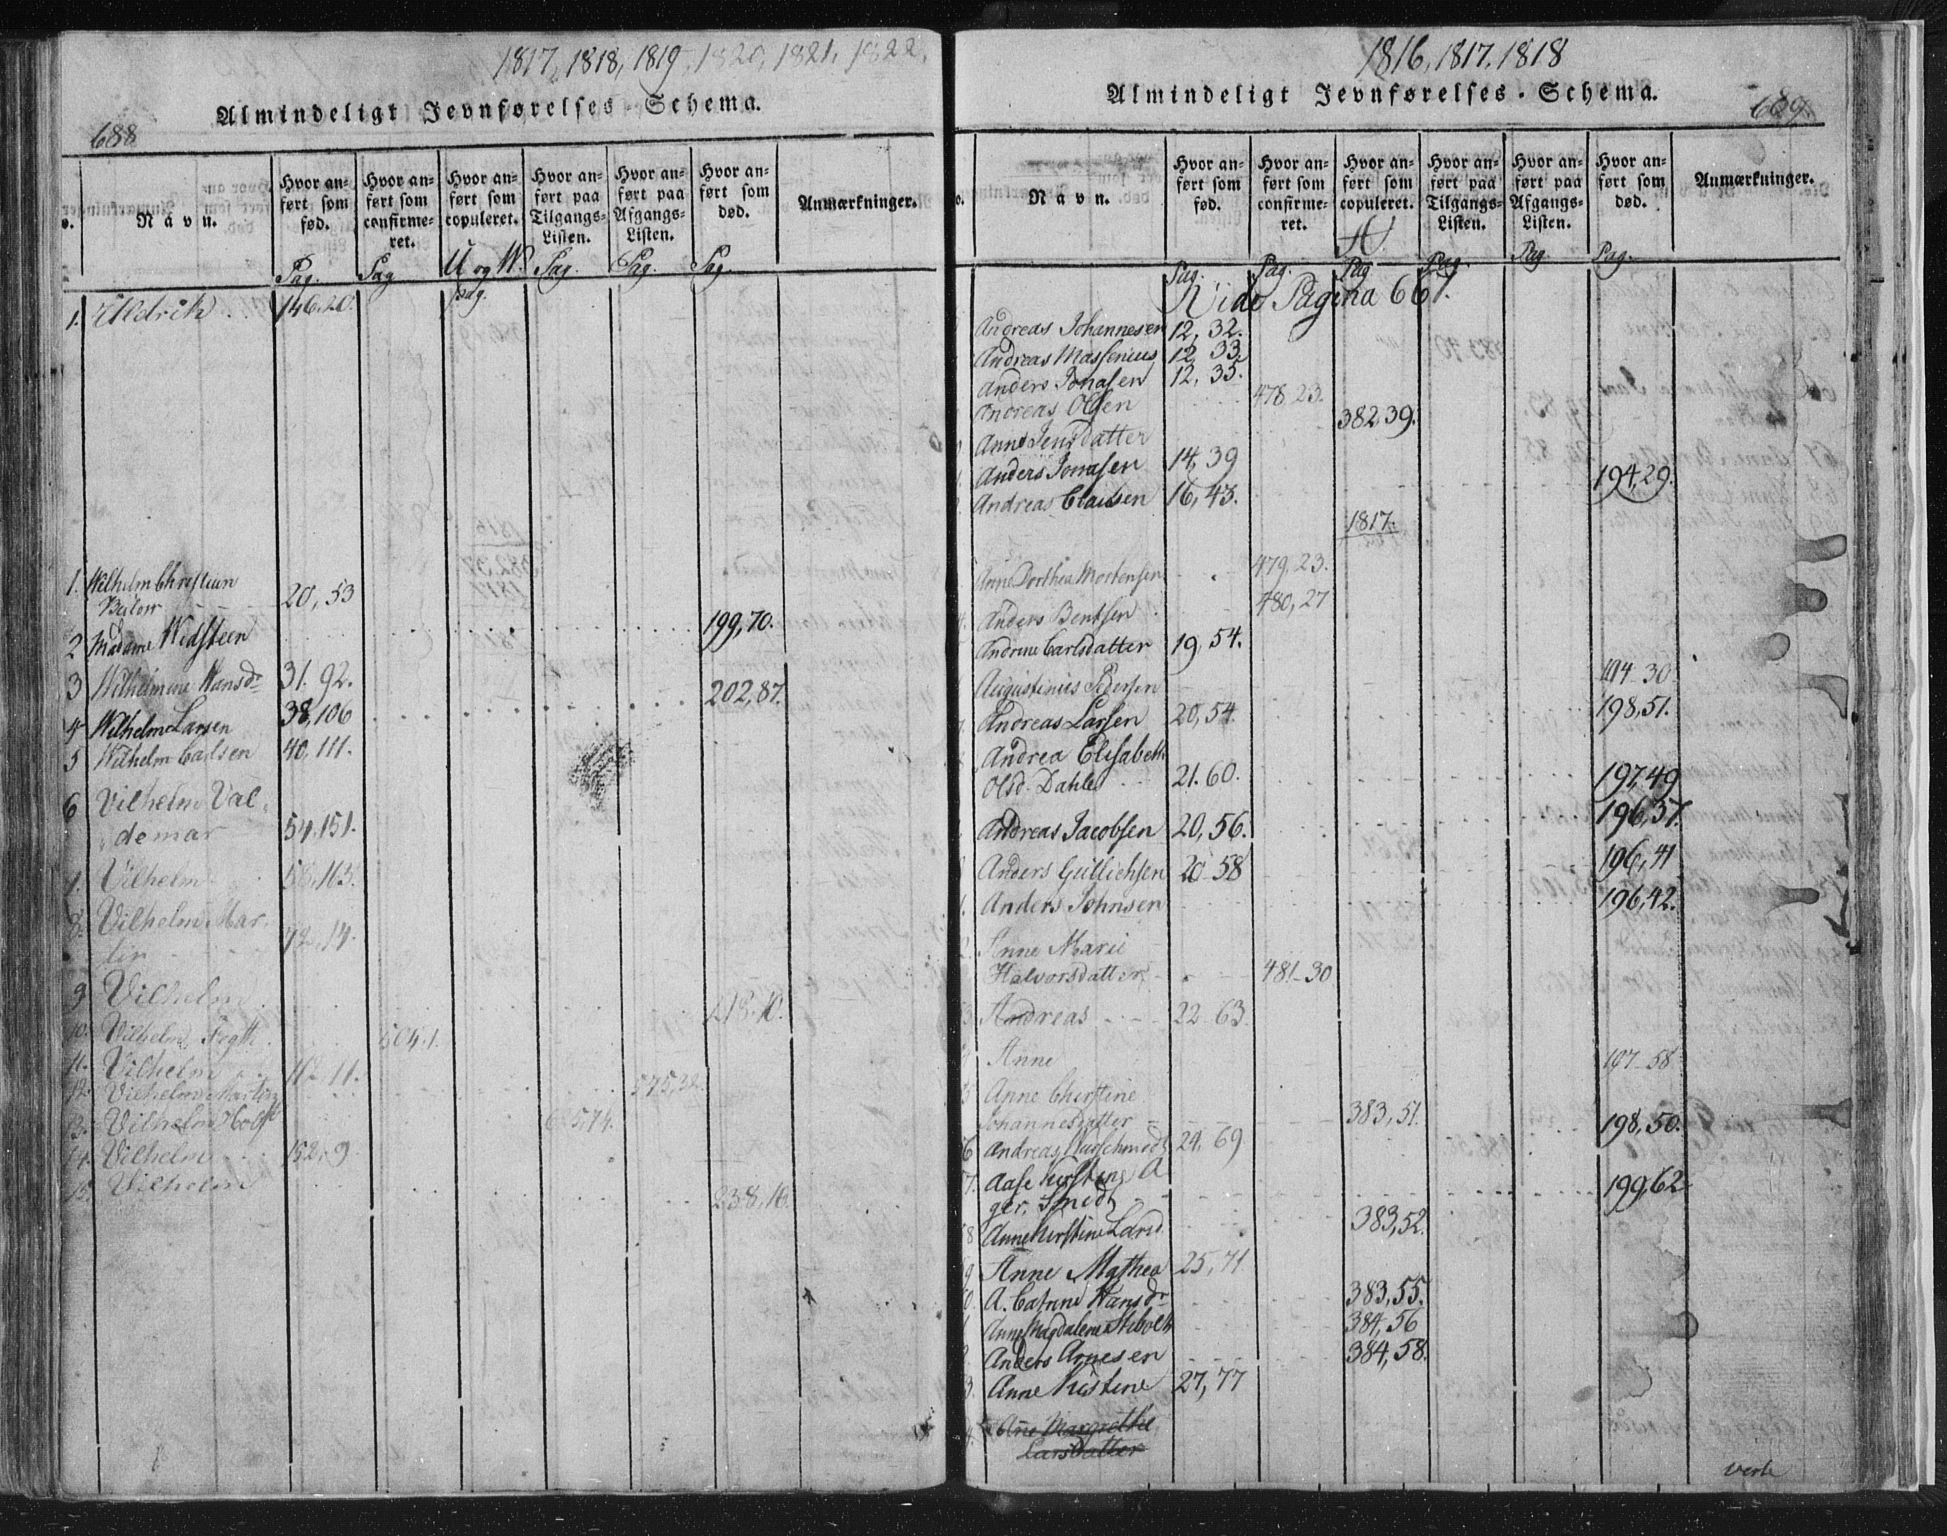 1817, 1818, 1819, 1820, 1821, 1822.
Almindeligt Jevnførelses-Schema.
688
Navn.
Hvor anført som fød.
Hvor anført som confirmeret.
Hvor anført som copuleret.
Hvor anført paa Tilgangs-Listen.
Hvor anført paa Afgangs-Listen.
Hvor anført som død.
Anmærkninger.
Pag. Pag U og W. Pag. Pag. Pag.
pag.
1. Uldrik 146.20.
1. Wilhelm Christian
Bülow 20, 53
2 Madame Widsteen 199, 70.
3 Wilhelmine Hansdr 31. 92.
202, 87.
4 Wilhelm Larsen 38, 106
5 Wilhelm Carlsen 40, 111.
6 Vilhelm Val-
demar 54, 151.
7. Vilhelm 58, 163.
8. Vilhelm Mar-
tin 72, 14.
9 Vilhelm 218. 10.
10. Vilhelm Fogth 504. 1.
11. Vilhelm 112. 11.
12. Vilhelm Martin 575, 32.
13. Vilhelm Holst 74.
14. Vilhelm 152. 9.
15. Vilhelm 238, 16.
1816, 1817, 1818
Almindeligt Jevnførelses-Schema.
689.
Navn.
Hvor anført som fød.
Hvor anført som confirmeret.
Hvor anført som copuleret.
Hvor anført paa Tilgangs-Listen.
Hvor anført paa Afgangs-Listen.
Hvor anført som død.
Anmærkninger.
A
Pag. Pag. Pag Pag. Pag Pag.
Vide Pagina 667.
Andreas Johannesen 12, 32.
Andreas Massenius 12, 33
Anders Jonasen 12, 35.
Andreas Olsen 478. 23.
Anne Jensdatter 382 39.
Anders Jonasen 14, 39
194, 29.
Andreas Clausen 16, 43.
1817.
Anne Dorthea Mortensen 479, 23.
Anders Bentsen 480, 27
Andrine Carlsdatter 19, 54.
Augustinus Pedersen 194 30
Andreas Larsen 20, 54. 198, 51.
Andrea Elisabeth
Olsd. Dahle 21. 60. 197, 49
Andreas Jacobsen 20, 56. 196, 37.
Anders Gullichsen 20 58 196, 41
Anders Johnsen 196, 42.
Anne Marie
Halvorsdatter 481-30
Andreas 22 63.
Anne 197-58
Anne Cherstine
Johannesdatter 383, 51.
198, 50.
Andreas Hurschmedt 24, 69
Aase Kirstine A
ger. Smedt 199, 62
Anne Kirstine Larsd. 383, 52.
Anne Mathea 25, 71
A. Catrine Hansdr 383, 55.
Anne Magdalene Stibolt 384, 56
Anders Arnesen 384, 58.
Anne Kistine 27, 77
Ane Margrethe
Larsdatter
verte